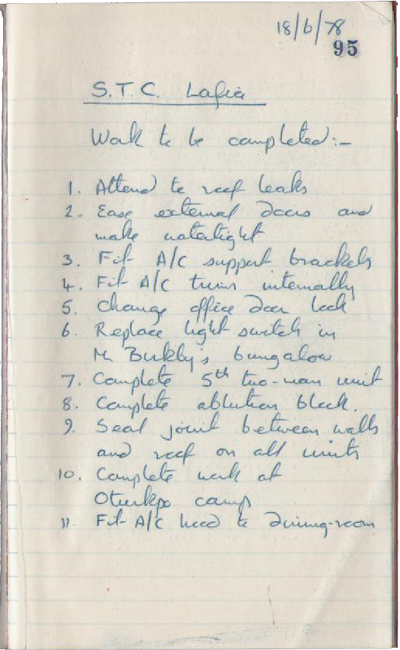 18/6/78
95
S.T.C. Lafia
Work to be completed:-
1. Attend to roof leaks
2. Ease external doors and
make watertight
3. Fit A/C support brackets
4. Fit A/C trims internally
5. Change office door lock
6. Replace light switch in
Mr Bukby's bungalow
7. Complete 5th two-man unit
8. Complete ablution block.
9. Seal joint between walls
and roof on all units
10. Complete work at
Oturkpo camp
11. Fit A/C hood to dining-room